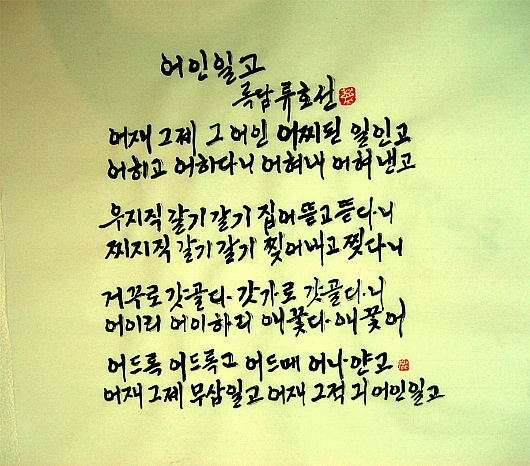 어인일고
록담 류호선
어재 그제 그 어인 어찌된 일인고
어히고 어하다니 어혀내 어혀낸고
우지직 갈기갈기 집어 뜯고 뜯다니
찌지직 갈기갈기 찢어버고 찢다니
거꾸로 갓골다 갓가로 갓골다니
어이리 어이하리 애꿎다 애꿎어
어드록 어드록고 어드메 어나 얀고
어재 그제 무삼일고 어재 그적 긔 어인일고